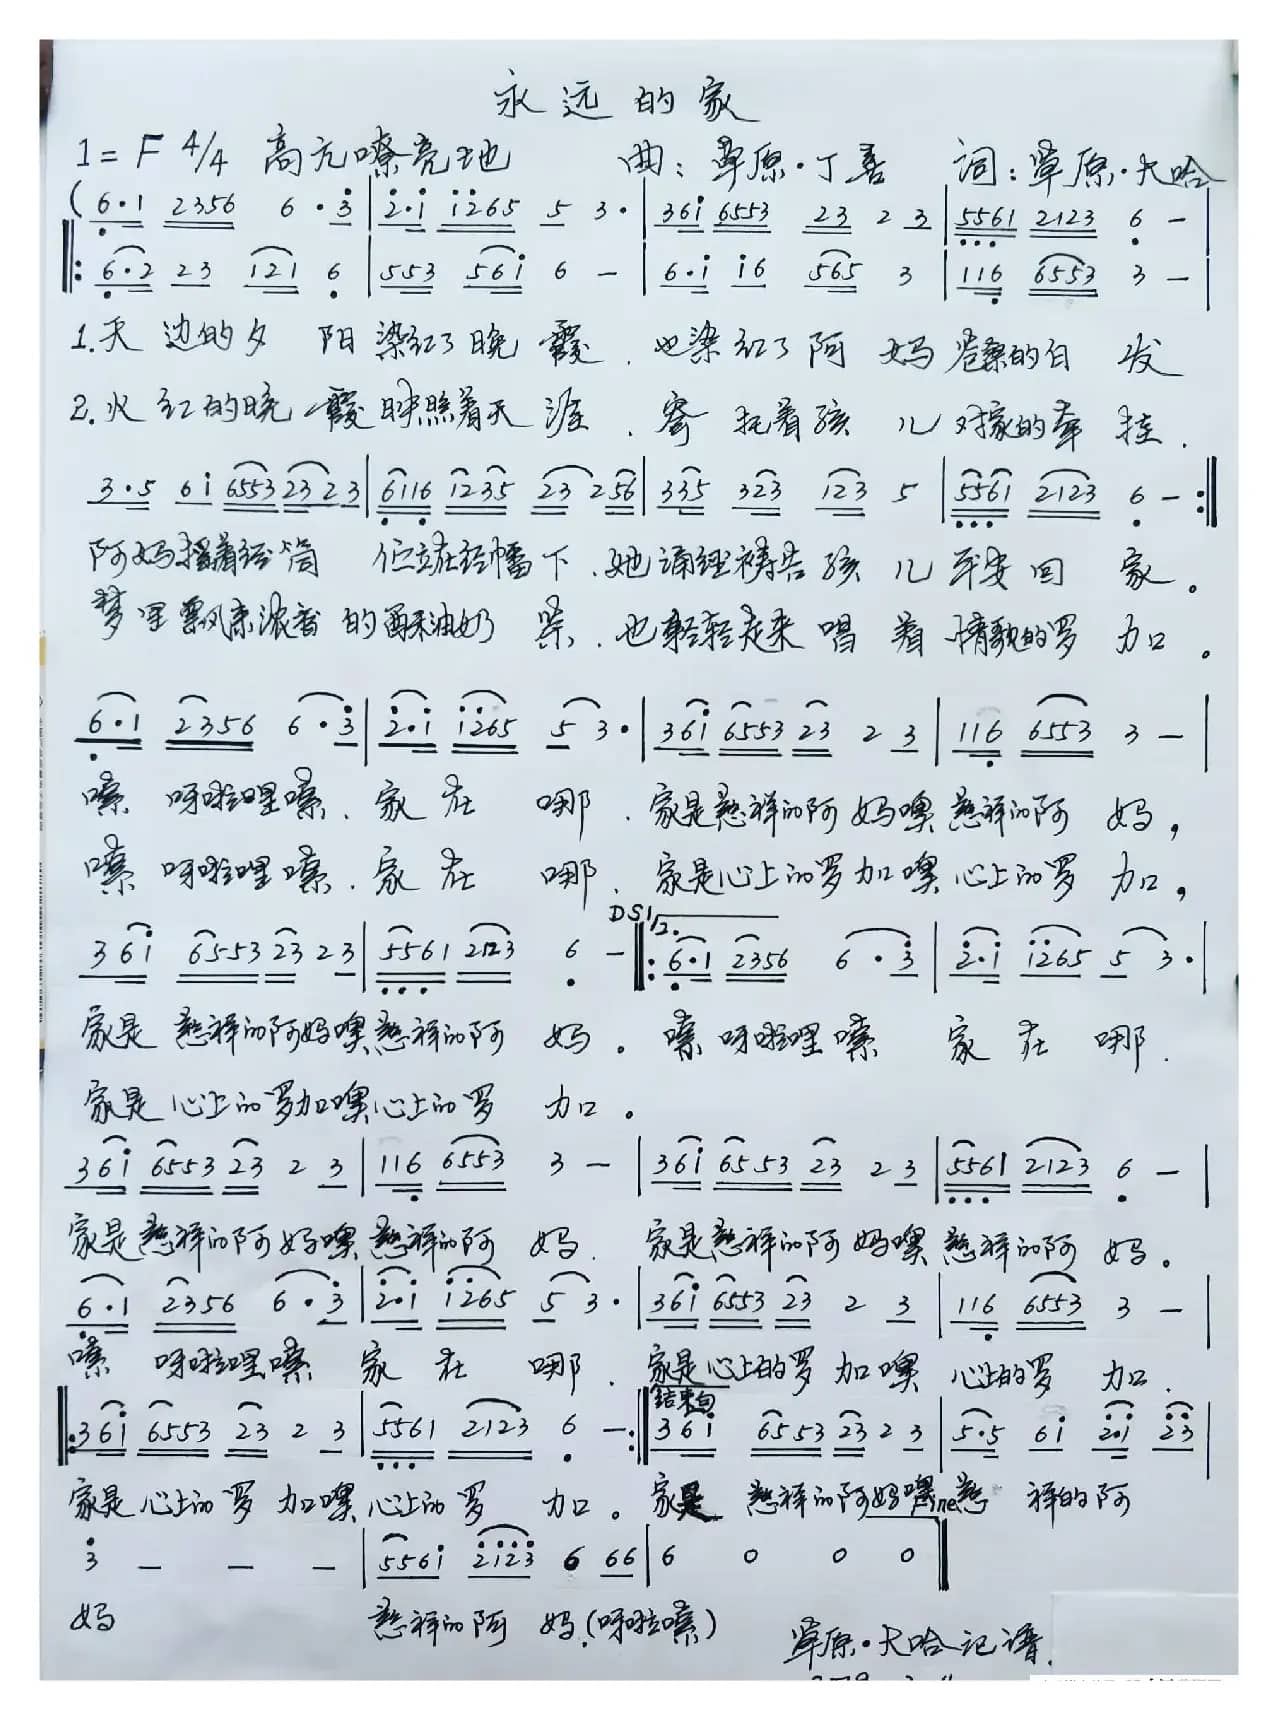 永远的家
1=F 4/4 高亢嘹亮地 曲:草原·丁喜 词:草原·大哈
(6·1 2356 6·3|2·i i265 5 3·|36i 6553 23 2 3|5561 2123 6 -
‖:6·2 23 121 6|553 56i 6 -|6·i i6 565 3|116 6553 3 -|
1.天边的夕阳染红了晚霞.也染红了阿妈苍桑的白发
2.火红的晚霞映照着天涯.寄托着孩儿对家的牵挂.
3·5 6i 6553 23 2 3|6116 1235 23 2 56|335 323 123 5|5561 2123 6 - :‖
阿妈摇着经筒 伫立在经幡下.她诵经祷告孩儿平安回家。
梦里飘来浓香的酥油奶茶.也轻轻走来唱着情歌的罗加。
6·1 2356 6·3|2·i i265 5 3·|36i 6553 23 2 3|116 6553 3 -|
嗦 呀啦哩嗦.家在哪.家是慈祥的阿妈噢慈祥的阿妈,
嗦 呀啦哩嗦.家在哪.家是心上的罗加噢心上的罗加,
DS1/2.
36i 6553 23 2 3|5561 2123 6 -‖:6·1 2356 6·3|2·i i265 5 3·|
家是慈祥的阿妈噢慈祥的阿妈。嗦 呀啦哩嗦 家在哪.
家是心上的罗加噢心上的罗加。
36i 6553 23 2 3|116 6553 3 -|36i 6553 23 2 3|5561 2123 6 -|
家是慈祥的阿妈噢慈祥的阿妈.家是慈祥的阿妈噢慈祥的阿妈。
6·1 2356 6·3|2·i i265 5 3·|36i 6553 23 2 3|116 6553 3 -|
嗦 呀啦哩嗦 家在哪.家是心上的罗加噢 心上的罗加.
结束句
‖:36i 6553 23 2 3|5561 2123 6 -:‖36i 6553 23 2 3|5·5 6i 2·i 23|
家是心上的罗加噢心上的罗加。家是 慈祥的阿妈噢慈 祥的阿
Fine
3 - - -|556i 2123 6 66|6 0 0 0‖
妈 慈祥的阿妈.(呀啦嗦)
草原·大哈记谱.